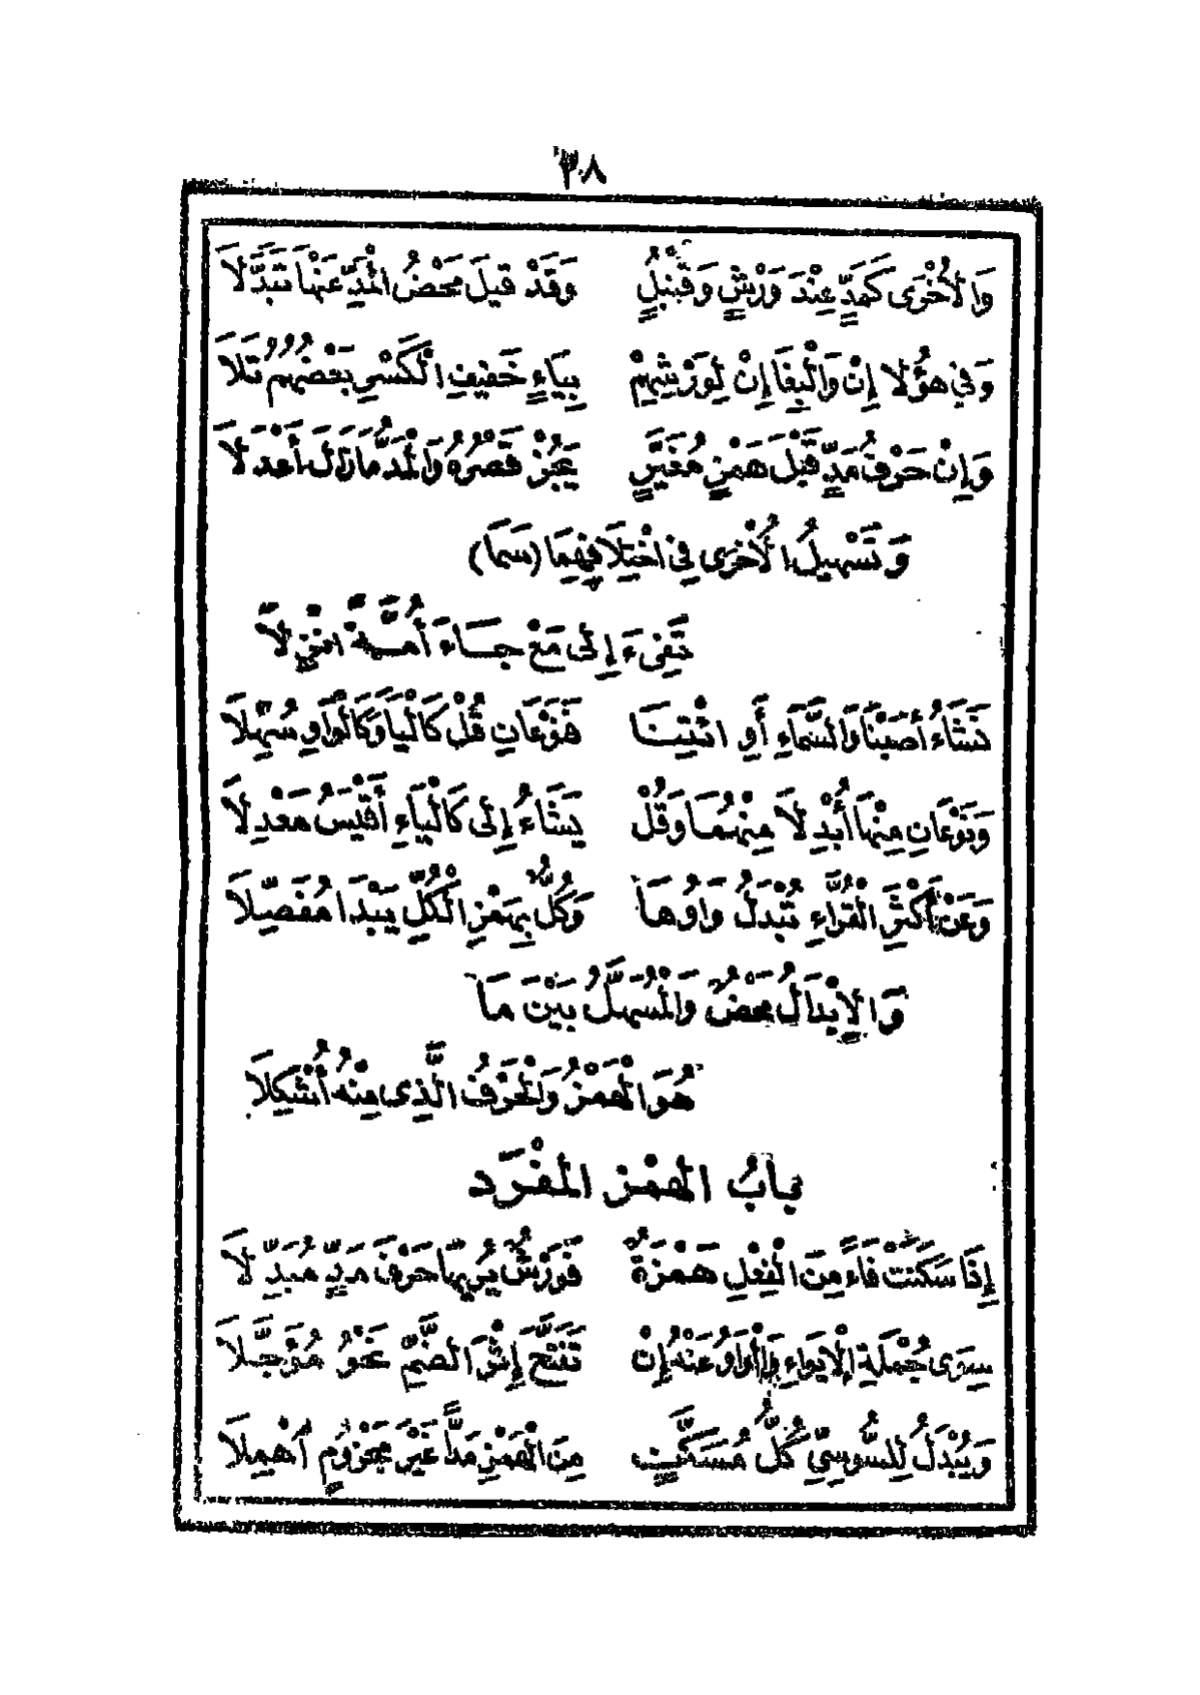 ٣٨
وَالأُخْرَى كَمَدٍّ عِنْدَ وَرْشٍ وَقُنْبُلٍ وَقَدْ قِيلَ مَحْضُ الْمَدِّ عَنْهَا تَبَدَّلاَ
وَفِي هؤُلا إِنْ وَالْبِغَا إِنْ لِوَرْشِهِمْ بِيَاءٍ خَفِيفِ الْكَسْرِ بَعْضُهُمُ تَلاَ
وَإِنْ حَرْفُ مَدٍّ قَبْلَ هَمْزٍ مُغَيَّرٍ يَجُزْ قَصْرُهُ وَالْمَدُّ مَازَالَ أَعْدَلاَ
وَتَسْهِيلُ الأُخْرَى فِي اخْتِلاَفِهِمَا (سَمَا)
تَفِىءَ إِلَى مَعْ جَاءَ أُمَّةً انْزِلاَ
نَشَاءُ أَصَبْنَا وَالسَّمَاءِ أَوِ ائْتِنَا فَنَوْعَانِ قُلْ كَالْيَا وَكَالْوَاوِ سُهِّلاَ
وَنَوْعَانِ مِنْهَا أُبْدِلاَ مِنْهُمَا وَقُلْ يَشَاءُ إِلَى كَالْيَاءِ أَقْيَسُ مَعْدِلاَ
وَعَنْ أَكْثَرِ الْقُرَّاءِ تُبْدَلُ وَاوُهَا وَكُلٌّ بِهَمْزِ الْكُلِّ يَبْدَا مُفَصِّلاَ
وَالإِبْدَالُ مَحْضٌ وَالْمُسَهَّلُ بَيْنَ مَا
هُوَ الْهَمْزُ وَالْحَرْفُ الَّذِى مِنْهُ أُشْكِلاَ
بابُ الهمْز المفْرَد
إِذَا سَكَنَتْ فَاءً مِنَ الْفِعْلِ هَمْزَةٌ فَوَرْشٌ يُرِيهَا حَرْفَ مَدٍّ مُبَدِّلاَ
سِوَى جُمْلَةِ الإِيوَاءِ وَالْوَاوُ عَنْهُ إِنْ تَفَتَّحَ إِثْرَ الضَّمِّ نَحْوُ مُؤَجَّلاَ
وَيُبْدَلُ لِلسُّوسِيِّ كُلُّ مُسَكَّنٍ مِنَ الْهَمْزِ مَدًّا غَيْرَ مَجْزُومٍ أُهْمِلاَ